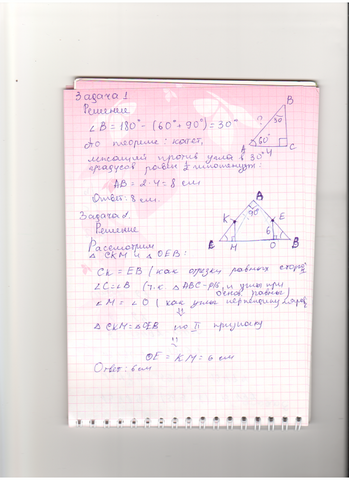 Задача 1
Решение
∠B = 180° - (60° + 90°) = 30°
По теореме: катет,
лежащий против угла в 30°
градусов равен ½ гипотенузы:
AB = 2·4 = 8 см
Ответ: 8 см.
B
?
30
A
60°
4
C
Задача 2.
Решение
Рассмотрим
△ CKM и △ OEB:
CK = EB (как отрезки равных сторон)
∠C = ∠B (т.к. △ABC - р/б, и углы при
основ. равны)
∠M = ∠O (как углы перпендикуляров)
⇓
△ CKM = △OEB по II признаку
⇓
OE = KM = 6 см
Ответ: 6 см
A
90°
K
E
6
M
O
B